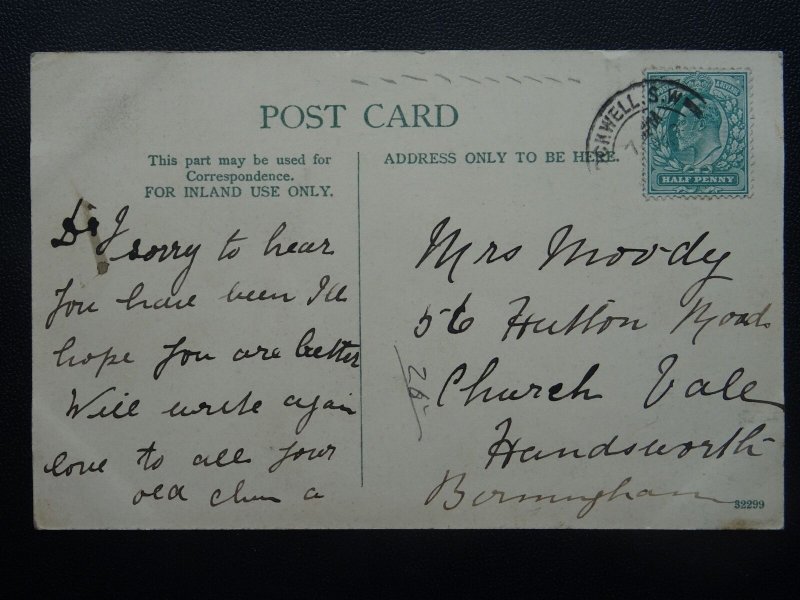 POST CARD
This part may be used for
Correspondence.
FOR INLAND USE ONLY.
ADDRESS ONLY TO BE HERE.
CKWELL. S.W
HALF PENNY
Dr J
sorry to hear
you have been Ill
hope you are better
Will write again
love to all your
old chum a
Mrs Moody
56 Hutton Road
Church Vale
Handsworth
Bermingham
26
32299